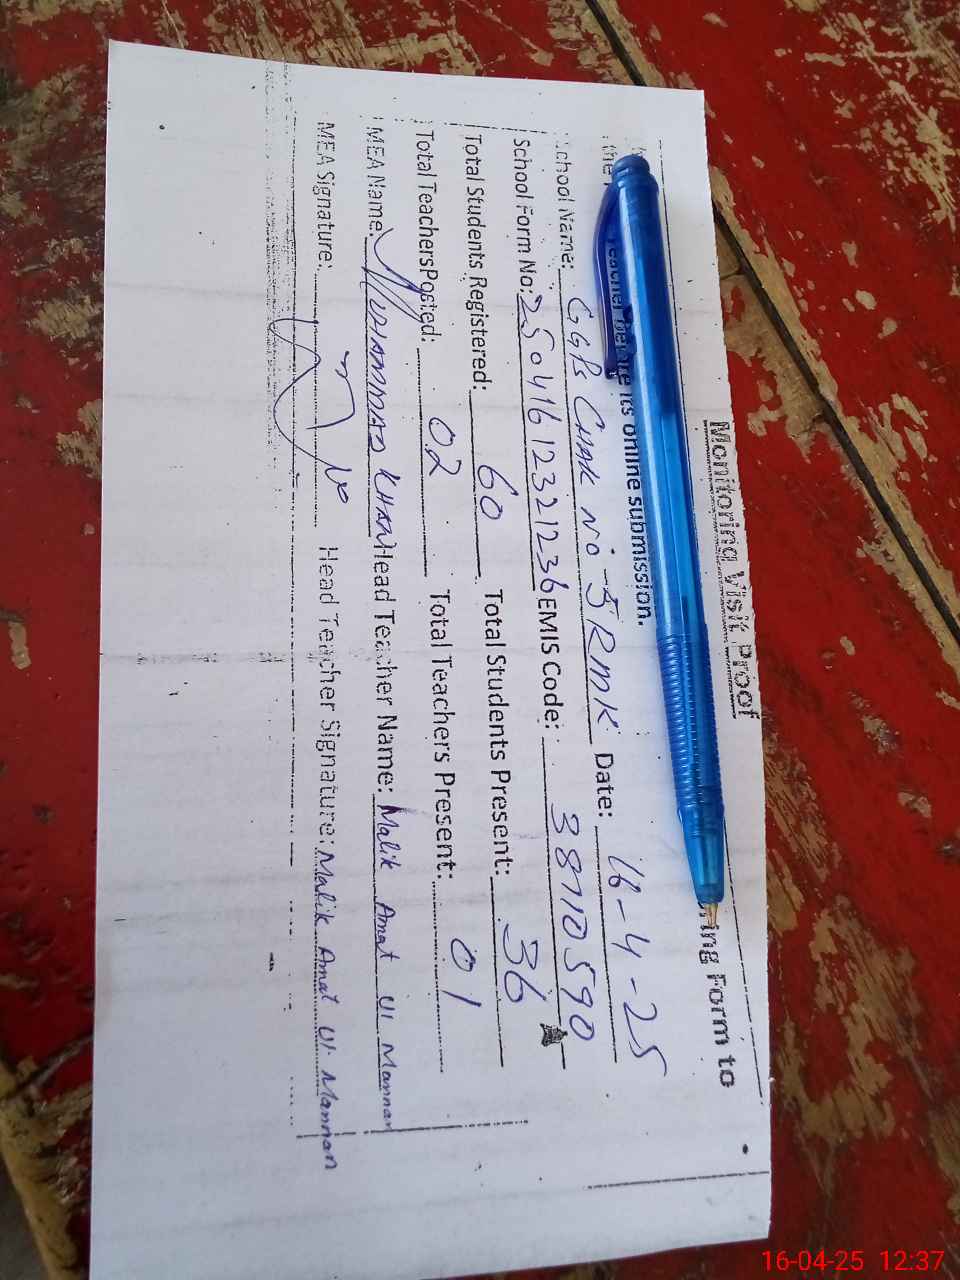 Monitoring Visit Proof
ring Form to
the Teacher before its online submission.
School Name: GGPS CHAK NO-5RMK Date: 16-4-25
School Form No: 25041612321236 EMIS Code: 38710590
Total Students Registered: 60 Total Students Present: 36
Total TeachersPosted: 02 Total Teachers Present: 01
MEA Name: MUHAMMAD KHAN Head Teacher Name: Malik Amat Ul Mannan
MEA Signature: Head Teacher Signature: Malik Amat Ul Mannan
16-04-25 12:37